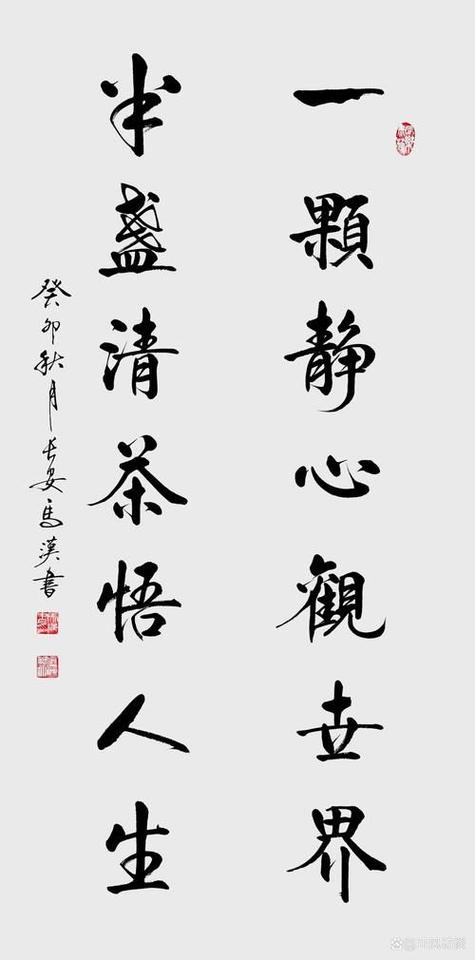 一顆静心觀世界
半盞清茶悟人生
癸卯秋月長安馬漢書